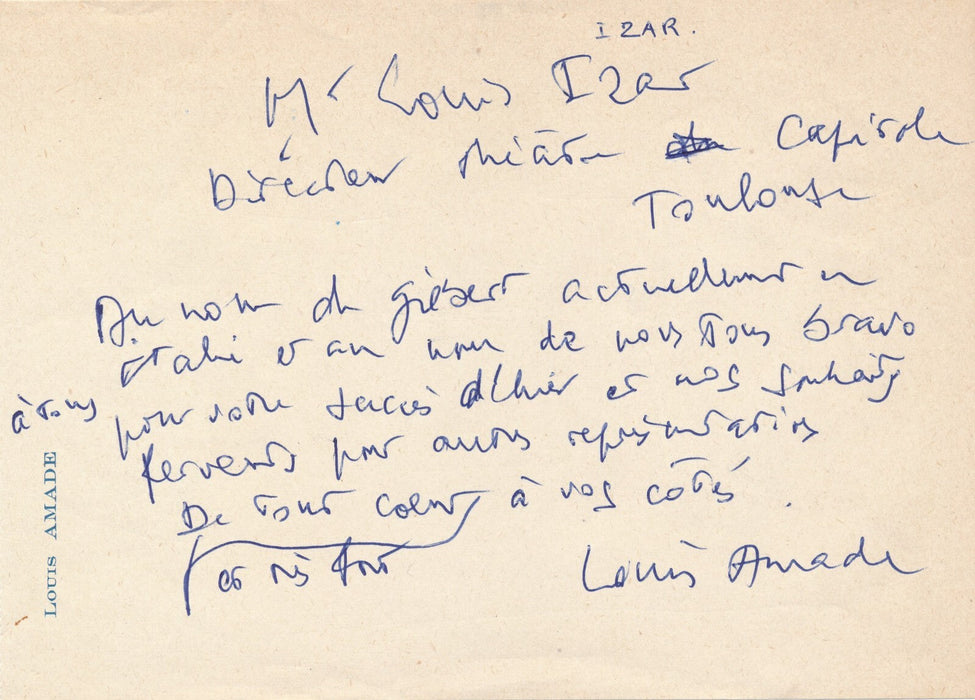 IZAR.
Mr Louis Izar
Directeur théâtre Capitole
Toulouse
Au nom de Gilbert actuellement en
Italie et au nom de nous tous bravo
à tous
pour votre succès d'hier et nos souhaits
fervents pour autres représentations
De tout coeur à vos côtés.
et très fort
Louis Amade
LOUIS AMADE